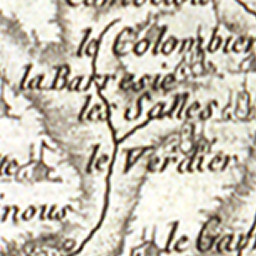 le Colombier
la Barresie
les Salles
le Verdier
nous
le Gar